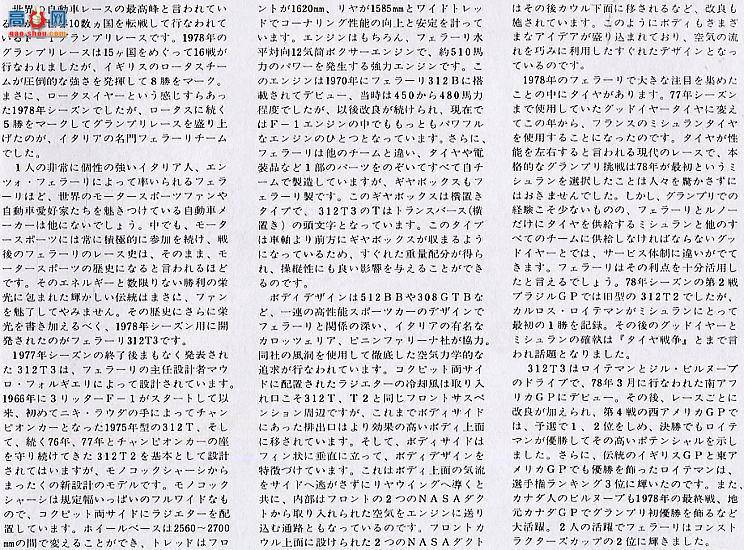 世界の自動車レースの最高峰と言われてい
る 10数ヵ国を転戦して行なわれて
い グランプリレースです。1978年の
グランプリレースは15ヶ国をめぐって16戦が
行なわれましたが、イギリスのロータスチー
ムが圧倒的な強さを発揮して8勝をマーク。
まさに、ロータスイヤーという感じすらあっ
た1978年シーズンでしたが、ロータスに続く
5勝をマークしてグランプリレースを盛り上
げたのが、イタリアの名門フェラーリチーム
でした。
1人の非常に個性の強いイタリア人、エン
ツォ・フェラーリによって率いられるフェラ
ーリほど、世界のモータースポーツファンや
自動車愛好家たちを魅きつけている自動車メ
ーカーは他にないでしょう。中でも、モータ
ースポーツには常に積極的に参加を続け、戦
後のフェラーリのレース史は、そのまま、モ
ータースポーツの歴史になると言われるほど
です。そのエネルギーと数限りない勝利の栄
光に包まれた輝かしい伝統はまさに、ファン
を魅了してやみません。その歴史にさらに栄
光を書き加えるべく、1978年シーズン用に開
発されたのがフェラーリ312T3です。
1977年シーズンの終了後まもなく発表され
た312T3は、フェラーリの主任設計者マウ
ロ・フォルギエリによって設計されています。
1966年に3リッターF-1がスタートして以
来、初めてニキ・ラウダの手によってチャン
ピオンカーとなった1975年型の312T、そし
て、続く76年、77年とチャンピオンカーの座
を守り続けてきた312T2を基本として設計
されてはいますが、モノコックシャーシから
まったくの新設計のモデルです。モノコック
シャーシは規定幅いっぱいのフルワイドなも
ので、コクピット両サイドにラジエターを配
置しています。ホイールベースは2560~2700
mmの間で変えることができ、トレッドはフロ
ントが1620mm、リヤが1585mmとワイドトレッ
ドでコーナリング性能の向上と安定を計って
います。エンジンはもちろん、フェラーリ水
平対向12気筒ボクサーエンジンで、約510馬
力のパワーを発生する強力エンジンです。こ
のエンジンは1970年にフェラーリ312Bに搭
載されてデビュー、当時は450から480馬力
程度でしたが、以後改良が続けられ、現在で
はF-1エンジンの中でももっともパワフル
なエンジンのひとつとなっています。さらに、
フェラーリは他のチームと違い、タイヤや電
装品など1部のパーツをのぞいてすべて自チ
ームで製造していますが、ギヤボックスもフ
ェラーリ製です。このギヤボックスは横置き
タイプで、312T3のTはトランスバース(横
置き)の頭文字となっています。このタイプ
は車軸より前方にギヤボックスが収まるよう
になっているため、すぐれた重量配分が得ら
れ、操縦性にも良い影響を与えることができ
るのです。
ボディデザインは512BBや308GTBな
ど、一連の高性能スポーツカーのデザインで
フェラーリと関係の深い、イタリアの有名な
カロッツェリア、ピニンファリーナ社が協力。
同社の風洞を使用して徹底した空気力学的な
追求が行なわれています。コクピット両サイ
ドに配置されたラジエターの冷却風は取り入
れ口こそ312T、T2と同じフロントサスペ
ンション周辺ですが、これまでボディサイド
にあった排出口はより効果の高いボディ上面
に移されています。そして、ボディサイドは
フィン状に垂直に立って、ボディデザインを
特徴づけています。これはボディ上面の気流
をサイドへ逃がさずにリヤウイングへ導くと
共に、内部はフロントの2つのNASAダク
トから取り入れられた空気をエンジンに送り
込む通路ともなっているのです。フロントカ
ウル上面に設けられた2つのNASAダクト
はその後カウル下面に移されるなど、改良も
施されています。このようにボディもさまざ
まなアイデアが盛り込まれており、空気の流
れを巧みに利用したすぐれたデザインとなっ
ているのです。
1978年のフェラーリで大きな注目を集めた
ことの中にタイヤがあります。77年シーズン
まで使用していたグッドイヤータイヤに変え
てこの年から、フランスのミシュランタイヤ
を使用することになったのです。タイヤが性
能を左右すると言われる現代のレースで、本
格的なグランプリ挑戦は78年が最初というミ
シュランを選択したことは人々を驚かさずに
はおきませんでした。しかし、グランプリでの
経験こそ少ないものの、フェラーリとルノー
だけにタイヤを供給するミシュランと他のす
べてのチームに供給しなければならないグッ
ドイヤーとでは、サービス体制に違いがでて
きます。フェラーリはその利点を十分活用し
たと言えるでしょう。78年シーズンの第2戦
ブラジルGPでは旧型の312T2でしたが、
カルロス・ロイテマンがミシュランにとって
最初の1勝を記録。その後のグッドイヤーと
ミシュランの確執は『タイヤ戦争』とまで言
われ話題となりました。
312T3はロイテマンとジル・ビルヌーブ
のドライブで、78年3月に行なわれた南アフ
リカGPにデビュー。その後、レースごとに
改良が加えられ、第4戦の西アメリカGPで
は、予選で1、2位をしめ、決勝でもロイテ
マンが優勝してその高いポテンシャルを示し
ました。さらに、伝統のイギリスGPと東ア
メリカGPでも優勝を飾ったロイテマンは、
選手権ランキング3位に輝いたのです。また、
カナダ人のビルヌーブも1978年の最終戦、地
元カナダGPでグランプリ初優勝を飾るなど
大活躍。2人の活躍でフェラーリはコンスト
ラクターズカップの2位に輝きました。